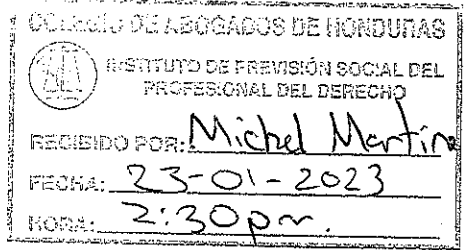 COLEGIO DE ABOGADOS DE HONDURAS
INSTITUTO DE PREVISIÓN SOCIAL DEL
PROFESIONAL DEL DERECHO
RECIBIDO POR: Michel Martine
FECHA: 23-01-2023
HORA: 2:30pm.